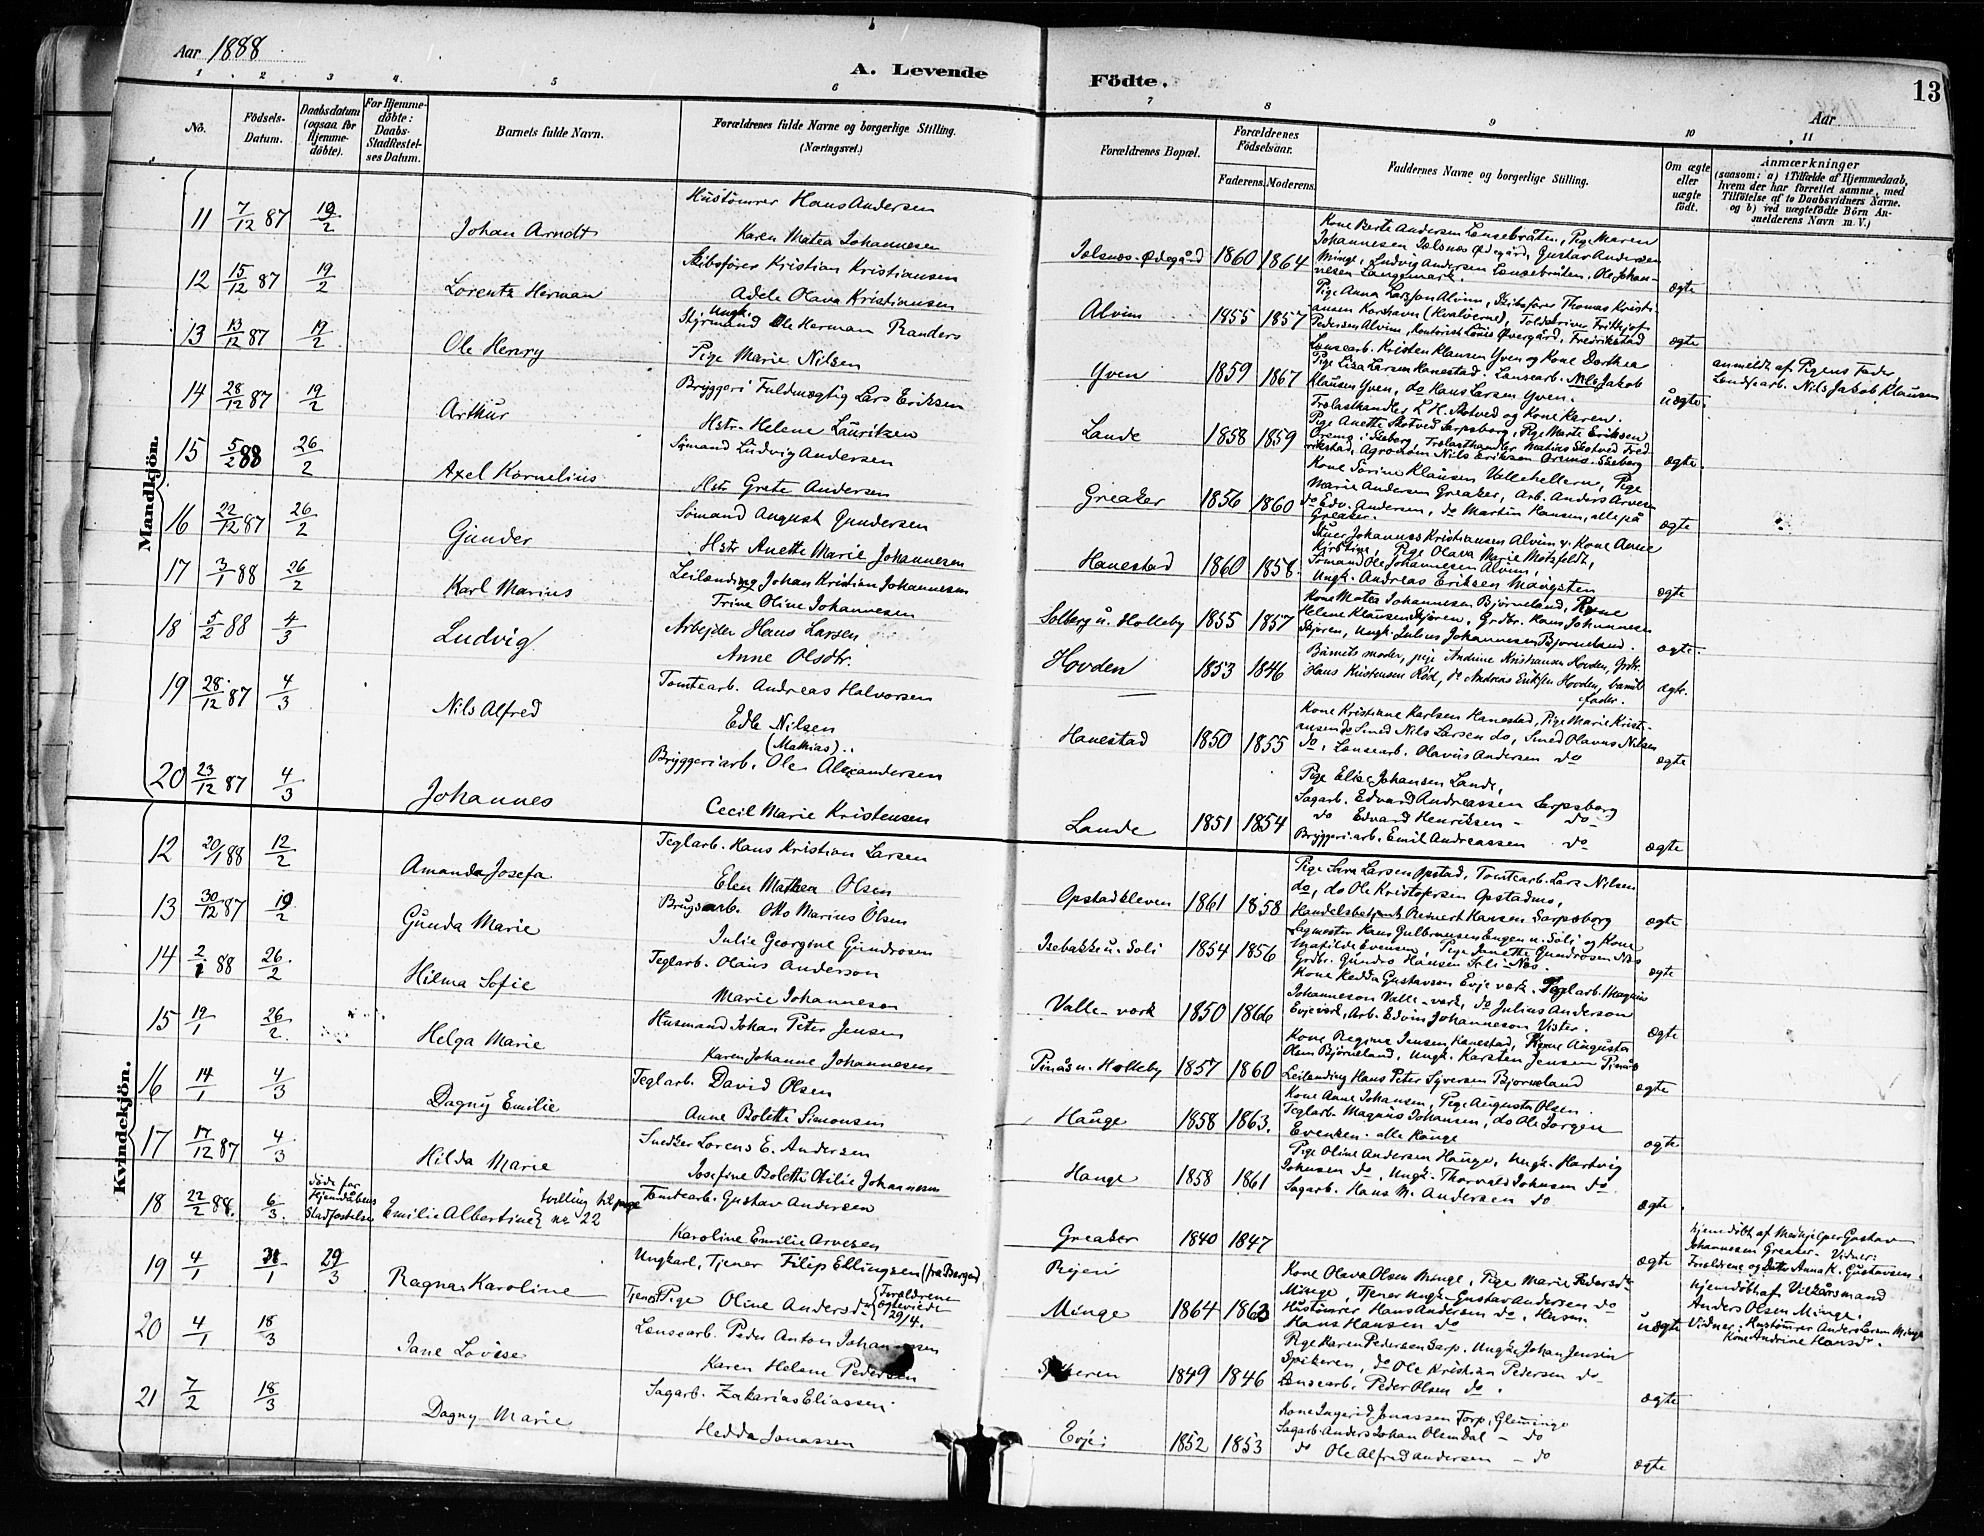 Aar 1888
A. Levende
Födte.
13
Aar
1 2 3 4. 5 6 7 8 9 10 11
No.
Födsels-Datum.
Daabsdatum (ogsaa for Hjemme-døbte).
For Hjemme-døbte: Daabs-Stadfæstel-ses Datum.
Barnets fulde Navn.
Forældrenes fulde Navne og borgerlige Stilling. (Næringsvei.)
Forældrenes Bopæl.
Forældrenes Födselsaar.
Faderens. Moderens.
Faddernes Navne og borgerlige Stilling.
Om ægte eller uægte født.
Anmærkninger
(saasom: a) i Tilfælde af Hjemmedaab,
hvem der har forrettet samme, med
Tilföielse af to Daabsvidners Navne.
og b) ved uægtefödte Börn An-
melderens Navn m. V.)
Mandkjön.
11 7/12 87 19/2 Johan Arndt
Hustömrer Hans Andersen
Karen Matea Johannesen
Jelsnæs-Ødegård 1860 1864
Kone Berte Andersen Lensebråten, Pige Maren
Johannesen Jelsnæs Ødegård, Gustav Andersen
Minge, Ludvig Andersen Lensebråten, Ole Johan-
nesen Langemark.
ægte
12 15/12 87 19/2 Lorentz Herman
Skibsfører Kristian Kristiansen
Adele Olava Kristiansen
Alvim 1855 1857
Pige Anna Larsson Alvim, Skibsfører Thomas Kristi-
ansen Karshavn (Hvaløerne), Toldskriver Frithjof
Pedersen Alvim, Kontorist Louis Øvergård, Fredrikstad
ægte
13 13/12 87 19/2 Ole Henry
Styrmand Ungk. Ole Herman Randers
Pige Marie Nilsen
Yven 1859 1867
Lensearb. Kristen Klausen Yven og Kone Dorthea
Pige Lisa Larsen Hanestad. Lensearb. Nils Jakob
Klausen Yven, do Hans Larsen Yven.
uægte.
anmeldt af Pigens Fader
Lendsearb. Nils Jakob Klausen
14 28/12 87 19/2 Arthur
Bryggeri Fuldmægtig Lars Eriksen
Hstr. Helene Lauritzen
Lande 1858 1859
Trælasthandler L. H. Skotved og Kone Karen.
Pige Anette Skotved Sarpsborg, Pige Marte Eriksen
Øremo i Skeberg, Trælasthandler Matias Skotved Fred-
rikstad, Agronom Nils Eriksen Øremo. Skeberg
ægte.
15 5/2 88 26/2 Axel Kornelius
Sömand Ludvig Andersen
Hstr Grete Andersen
Greaker 1856 1860
Kone Sorine Klausen Vallehellern, Pige
Marie Andersen Greaker, Arb. Anders Arvesen
do Edv. Andersen, do Martin Hansen, alle på
Greaker.
ægte
16 22/12 87 26/2 Gunder
Sömand August Gundersen
Hstr Anette Marie Johannesen
Hanestad 1860 1858.
Stuer Johannes Kristiansen Alvim & Kone Anne
Kirstine, Pige Olava Marie Motzfeldt,
Sömand Ole Johannesen Alvim,
Ungk. Andreas Eriksen Mängsten
ægte
17 3/1 88 26/2 Karl Marius
Leilænding Johan Kristian Johannesen
Trine Oline Johannesen
Solberg u. Holleby 1855 1857
Kone Matea Johannesen Bjørneland, Kone
Helene Klausen Skjøren, Grdbr. Hans Johannesen
Skjøren, Ungk. Julius Johannesen Bjørneland.
ægte.
18 5/2 88 4/3 Ludvig
Arbejder Hans Larsen
Anne Olsdtr.
Hovden 1853 1846
Barnets moder, pige Andrine Kristiansen Hovden, Grdbr.
Hans Kristensen Röd, do Andreas Eriksen Hovden, barnets
fader.
ægte.
19 28/12 87 4/3 Nils Alfred
Tomtearb. Andreas Halvorsen
Edle Nilsen
Hanestad 1850 1855
Kone Kristiane Karlsen Hanestad, Pige Marie Kristi-
ansen do Smed Nils Larsen do, Smed Olavus Nilsen
do, Lensearb. Olavus Andersen do
ægte
20 23/12 87 4/3 Johannes
(Mathias)
Bryggeriarb. Ole Alexandersen
Cecil Marie Kristensen
Lande 1851 1854
Pige Elise Johansen Lande,
Sagarb. Edvard Andreassen Sarpsborg
do Edvard Henriksen - do
Bryggeriarb. Emil Andreassen do
ægte
Kvindekjön.
12 20/1 88 12/2 Amanda Josefa
Teglarb. Hans Kristian Larsen
Elen Mathea Olsen
Opstadkleven 1861 1858
Pige Lava Larsen Opstad, Tomtearb. Lars Nilsen
do, do Ole Kristofersen Opstadmo,
Handelsbetjent Reinert Hansen Sarpsborg
ægte
13 30/12 87 19/2 Gunda Marie
Brugsarb. Otto Marius Olsen
Julie Georgine Gundrosen
Isebakke u. Soli 1854 1856
Lgmester Hans Gulbransen Engen u. Soli og Kone
Mathilde Evensen, Pige Janette Gundrosen Næs
Grdbr. Gundro Hansen Soli-Næs.
ægte
14 2/1 88 26/2 Hilma Sofie
Teglarb. Olaus Anderson
Marie Johanneson
Valle-værk 1850 1866
Kone Hedda Gustavson Evje værk. Teglarb. Magnus
Johanneson Valle-værk, do Julius Anderson
Evjeværk, Arb. Edvin Johanneson Vister.
ægte
15 19/1 26/2 Helga Marie
Husmand Johan Peter Jensen
Karen Johanne Johannesen
Pinås u. Holleby 1857 1860
Kone Regine Jensen Hanestad, Kone Augusta
Olsen Bjørneland, Ungk. Karsten Jensen Pinås
Leilænding Hans Peter Syversen Bjørneland
ægte
16 14/1 4/3 Dagny Emilie
Teglarb. David Olsen
Anne Bolette Simonsen
Hauge 1858 1863.
Kone Anne Johansen, Pige Augusta Olsen.
Teglarb. Magnus Johansen, do Ole Jørgen
Evensen. alle Hauge
ægte
17 17/12 87 4/3 Hilda Marie
Snedker Lorens E. Andersen
Josefine Bolette Otilie Johannesen
Hauge 1858 1861
Pige Oline Andersen Hauge, Ungk. Hartvig
Johnsen do, Ungk. Thorvald Johnsen do.
Sagarb. Hans M. Andersen do.
ægte.
18 22/2 88. 6/3. døde før Hjemdåbens Stadfæstelse
Emilie Albertine tvilling til pige nr 22
Tomtearb. Gustav Andersen
Karoline Emilie Arvesen
Greaker 1840 1847
ægte
hjemdöbt af Medhjelper Gustav
Johannesen Greaker. Vidner:
Forældrene og Dtr Anna K. Gustavsen.
19 4/1 31/1 29/3 Ragna Karoline
Ungkarl, Tjener Filip Ellingsen (fra Bergen)
Tjenst Pige Oline Andersdtr (Forældrene ægteviede 29/4.
Rejen
Minge 1864 1863
Kone Olava Olsen Minge, Pige Marie Pedersdtr
Minge, Tjener Ungk. Gustav Andersen do
Hustömrer Hans Andersen do, Husm.
Hans Hansen do
uægte
hjemdöbt af Vilkårsmand
Anders Olsen Minge.
Vidner: Hustömrer Anders Larsen Minge
Kone Andrine Hansdr.
20 4/1 18/3 Jane Lovise
Lensearb. Peder Anton Johannesen
Karen Helene Pedersen
1849 1846
Pige Karen Pedersen Sarp. Ungk. Johan Jensen
Spikeren, do Ole Kristian Pedersen do
Lensearb. Peder Olsen do.
ægte
21 7/2 18/3 Dagny Marie
Sagarb. Zakarias Eliassen
Hedda Jonassen
Evje 1852 1853
Kone Ingerid Jonassen Torp, Glemminge
Sagarb. Anders Johan Olsen Dal - do
do Ole Alfred Andersen - do
ægte